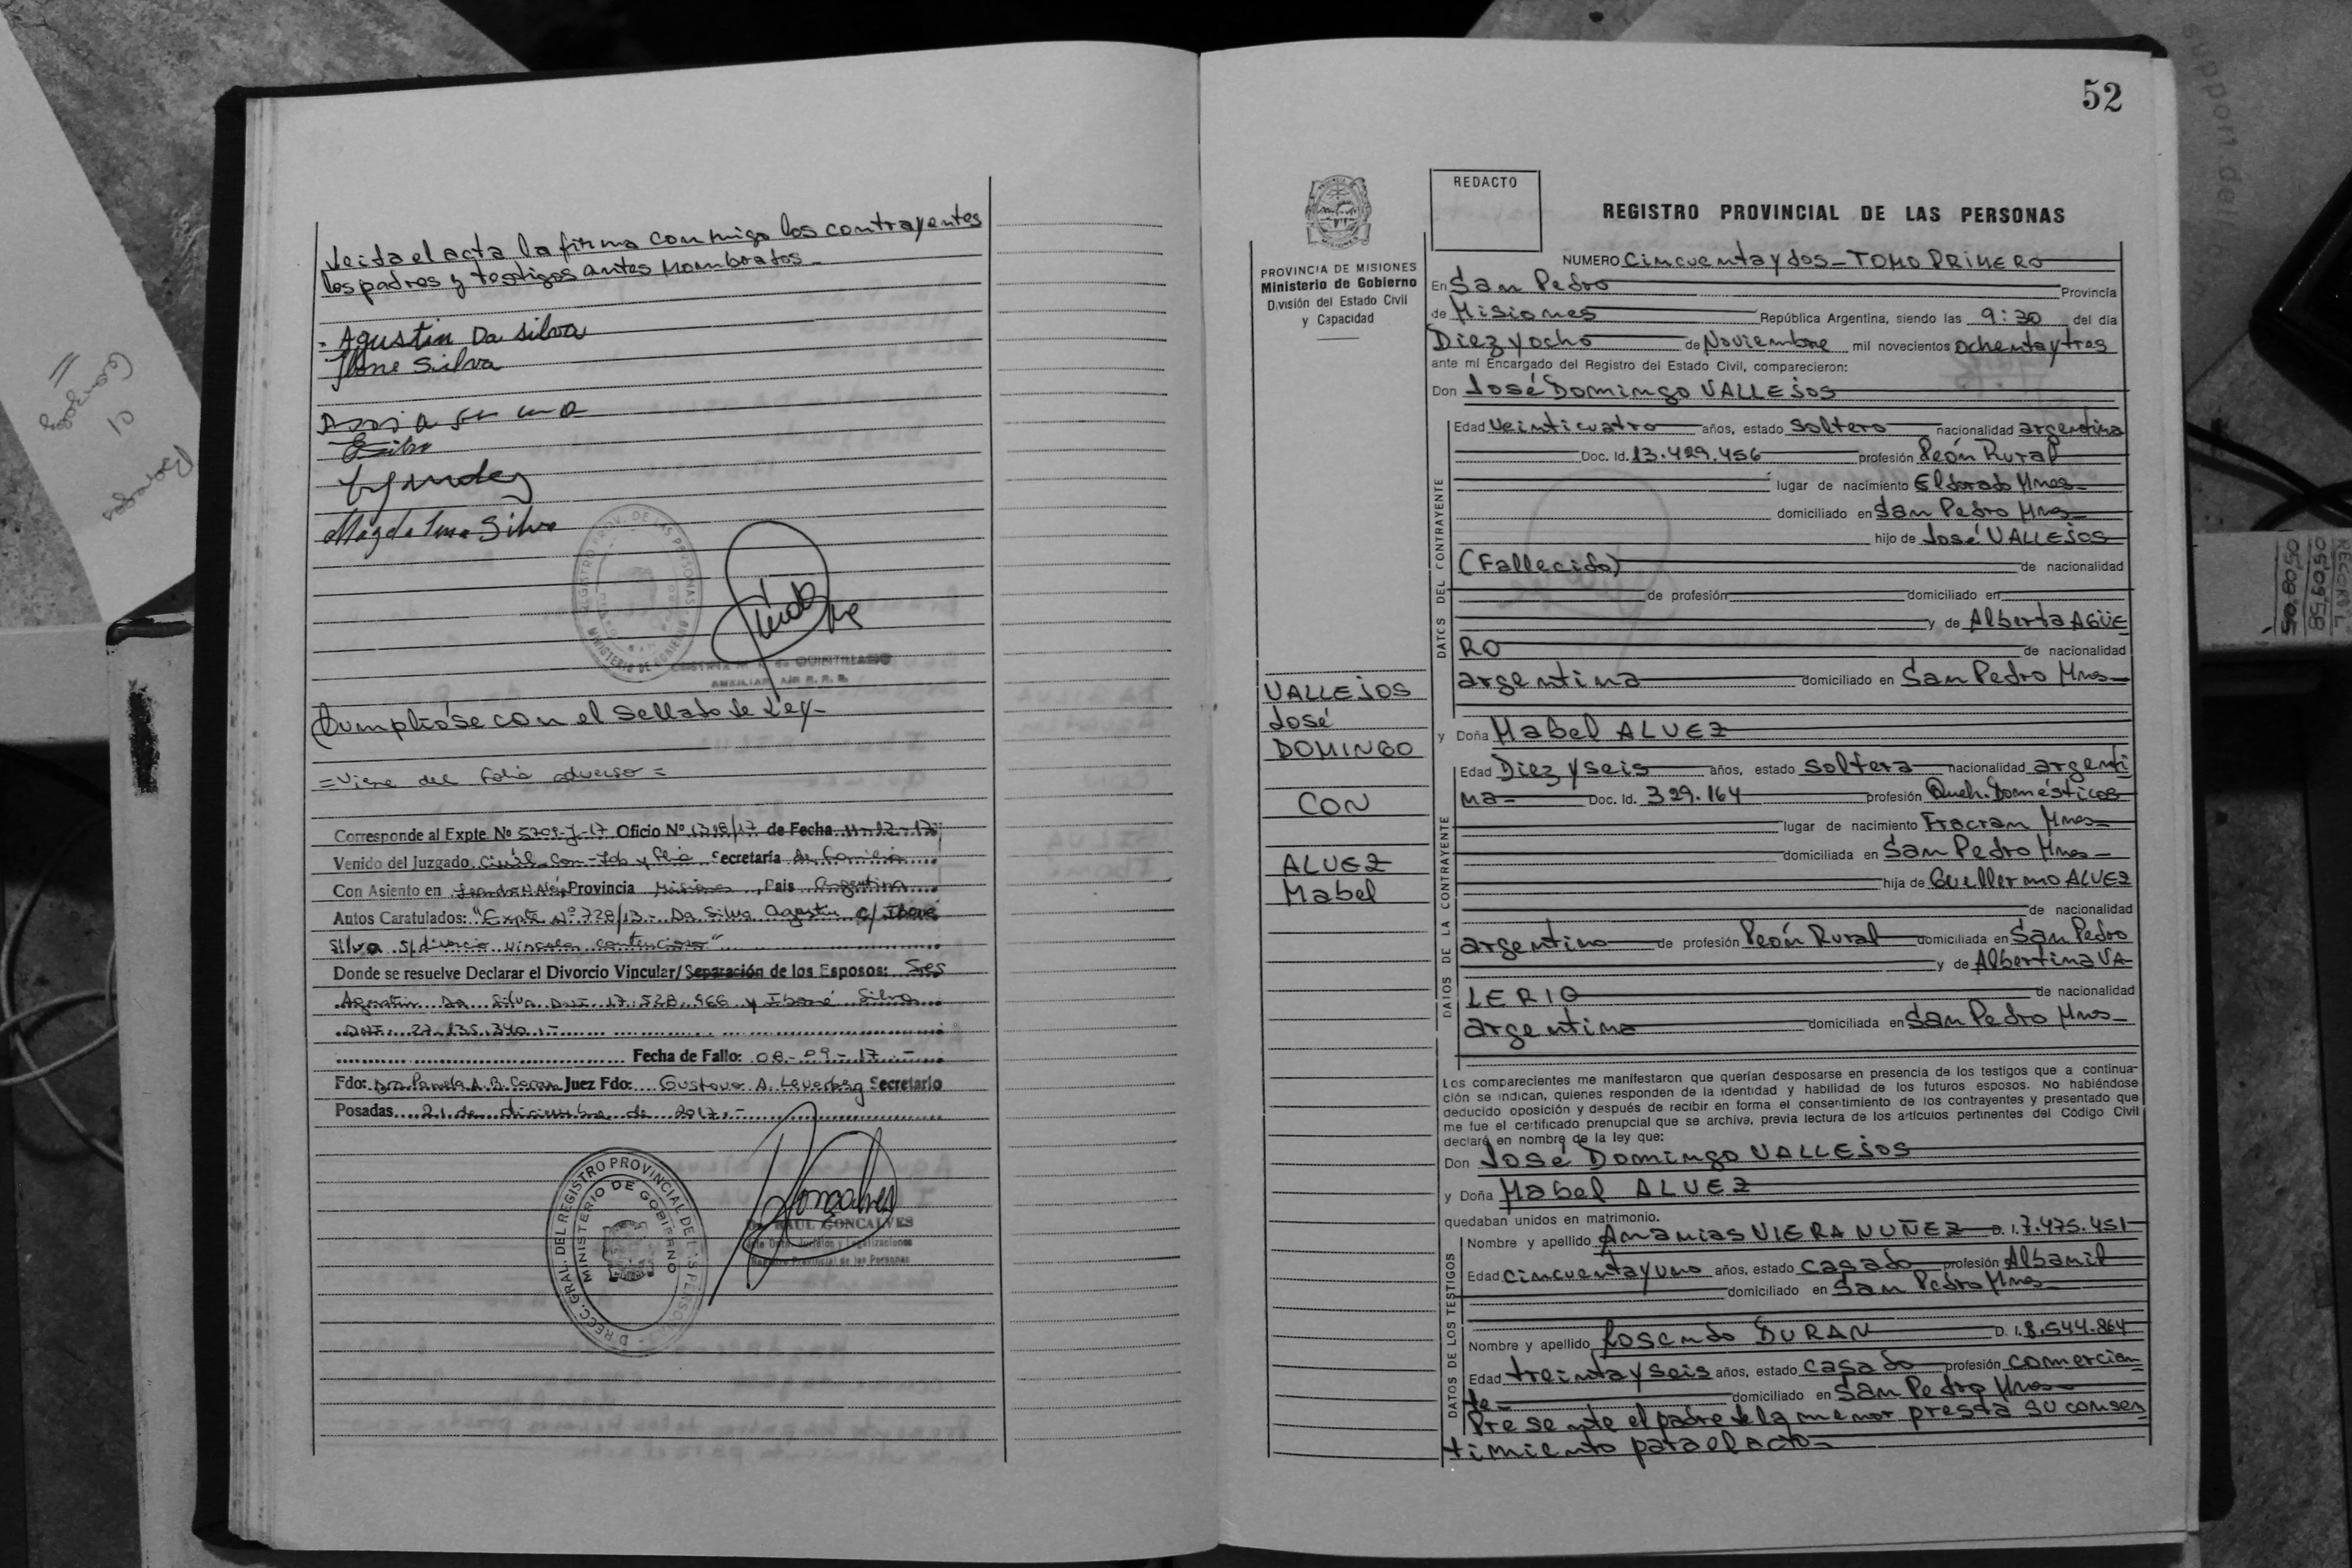 Leida el acta la firma conmigo los contrayentes
los padres y testigos antes nombrados_
Agustin Da silva
Ibone Silva
Silva
Magdalena Silva
REGISTRO PROV. DE LAS PERSONAS
MINISTERIO DE GOBIERNO
de QUINTILIANO
AUXILIAR
Cumplióse con el sellado de Ley_
=Viene del folio adverso=
Corresponde al Expte Nº 5709-J-17 Oficio Nº 1318/17 de Fecha 11-12-17
Venido del Juzgado Civil Com-Lab y Flia Secretaría de Familia
Con Asiento en Leandro N Alem Provincia Misiones, País Argentina
Autos Caratulados: "Expte Nº 728/13- Da Silva Agustin c/ Iboné
Silva s/divorcio vincular contencioso"
Donde se resuelve Declarar el Divorcio Vincular/Separación de los Esposos: Sres
Agustin Da Silva DNI 17.528.966 y Iboné Silva
DNI: 27.135.340.-
Fecha de Fallo: 08-09-17.-
Fdo: Dra Pamela A. B. Juez Fdo: Gustavo A. Leverberg Secretario
Posadas 21 de diciembre de 2017.-
DIRECC. GRAL. DEL REGISTRO PROVINCIAL DE LAS PERSONAS
MINISTERIO DE GOBIERNO
Goncalves
Dr. RAUL GONCALVES
Jefe Dpto. Jurídico y Legalizaciones
Registro Provincial de las Personas
52
PROVINCIA DE MISIONES
Ministerio de Gobierno
División del Estado Civil
y Capacidad
VALLEJOS
José
DOMINGO
CON
ALVEZ
Mabel
REDACTO
REGISTRO PROVINCIAL DE LAS PERSONAS
NUMERO Cincuenta y dos_TOMO PRIMERO
En San Pedro Provincia
de Misiones República Argentina, siendo las 9:30 del día
Diez y ocho de Noviembre mil novecientos ochenta y tres
ante mi Encargado del Registro del Estado Civil, comparecieron:
Don José Domingo VALLEJOS
DATOS DEL CONTRAYENTE
Edad Veinticuatro años, estado soltero nacionalidad argentina
Doc. Id. 13.429.456 profesión Peón Rural
lugar de nacimiento Eldorado Mnes_
domiciliado en San Pedro Mnes_
hijo de José VALLEJOS
(Fallecido) de nacionalidad
de profesión domiciliado en
y de Alberta AGÜE
RO de nacionalidad
argentina domiciliado en San Pedro Mnes_
y Doña Mabel ALVEZ
DATOS DE LA CONTRAYENTE
Edad Diez y seis años, estado soltera nacionalidad argenti
na_ Doc. Id. 329.164 profesión Queh. Domésticos
lugar de nacimiento Fracran Mnes_
domiciliada en San Pedro Mnes_
hija de Guellermo ALVEZ
de nacionalidad
argentino de profesión Peón Rural domiciliada en San Pedro
y de Albertina VA
LERIO de nacionalidad
argentina domiciliada en San Pedro Mnes_
Los comparecientes me manifestaron que querían desposarse en presencia de los testigos que a continua-
ción se indican, quienes responden de la identidad y habilidad de los futuros esposos. No habiéndose
deducido oposición y después de recibir en forma el consentimiento de los contrayentes y presentado que
me fue el certificado prenupcial que se archiva, previa lectura de los artículos pertinentes del Código Civil
declaré en nombre de la ley que:
Don José Domingo VALLEJOS
y Doña Mabel ALVEZ
quedaban unidos en matrimonio.
DATOS DE LOS TESTIGOS
Nombre y apellido Ananias VIERA NUÑEZ D. I. 7.475.451
Edad cincuenta y uno años, estado casado profesión Albanil
domiciliado en San Pedro Mnes
Nombre y apellido Rosendo DURAN D. I. 8.544.864
Edad treinta y seis años, estado casado profesión comercian
te_ domiciliado en San Pedro Mnes
Presente el padre de la menor presta su consen
timiento para el acto_